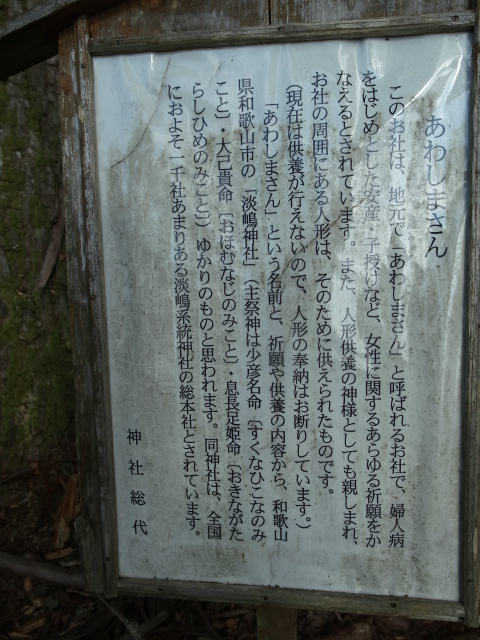 あわしまさん
このお社は、地元で「あわしまさん」と呼ばれるお社で、婦人病
をはじめとした安産・子授けなど、女性に関するあらゆる祈願をか
なえるとされています。また、人形供養の神様としても親しまれ、
お社の周囲にある人形は、そのために供えられたものです。
(現在は供養が行えないので、人形の奉納はお断りしています。)
「あわしまさん」という名前と、祈願や供養の内容から、和歌山
県和歌山市の「淡嶋神社」(主祭神は少彦名命〔すくなひこなのみ
こと〕・大己貴命〔おほむなじのみこと〕・息長足姫命〔おきながた
らしひめのみこと〕)ゆかりのものと思われます。同神社は、全国
におよそ一千社あまりある淡嶋系統神社の総本社とされています。
神社総代